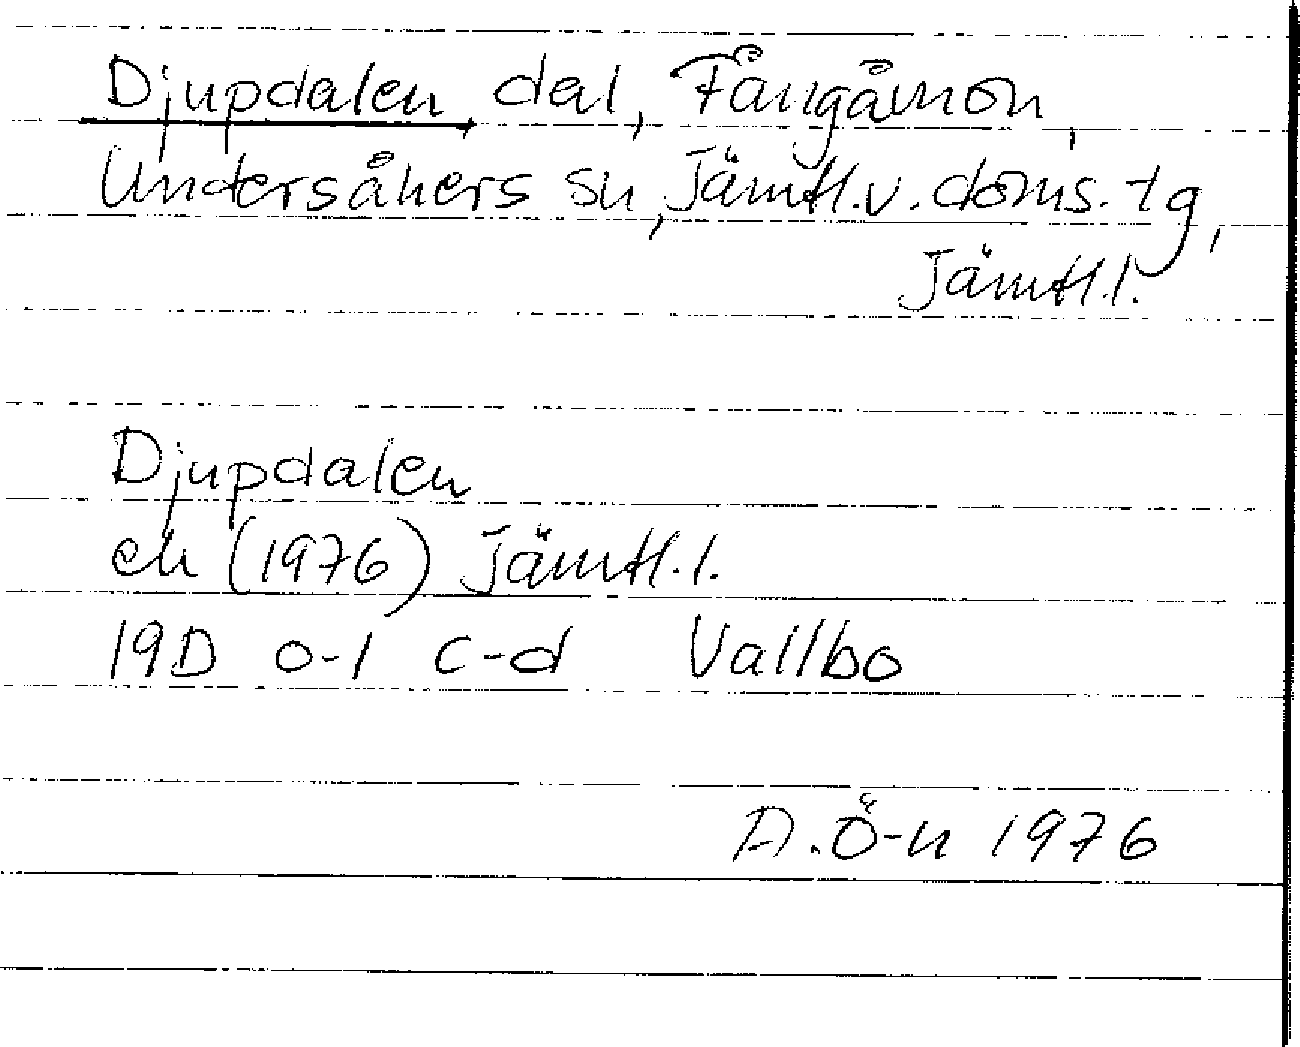 Djupdalen, dal, Fångåmon,
Undersåkers sn, Jämtl.v.doms.tg,
Jämtl.l.
Djupdalen
ek (1976) Jämtl.l.
19D 0-1 c-d Vallbo
A.Ö-n 1976